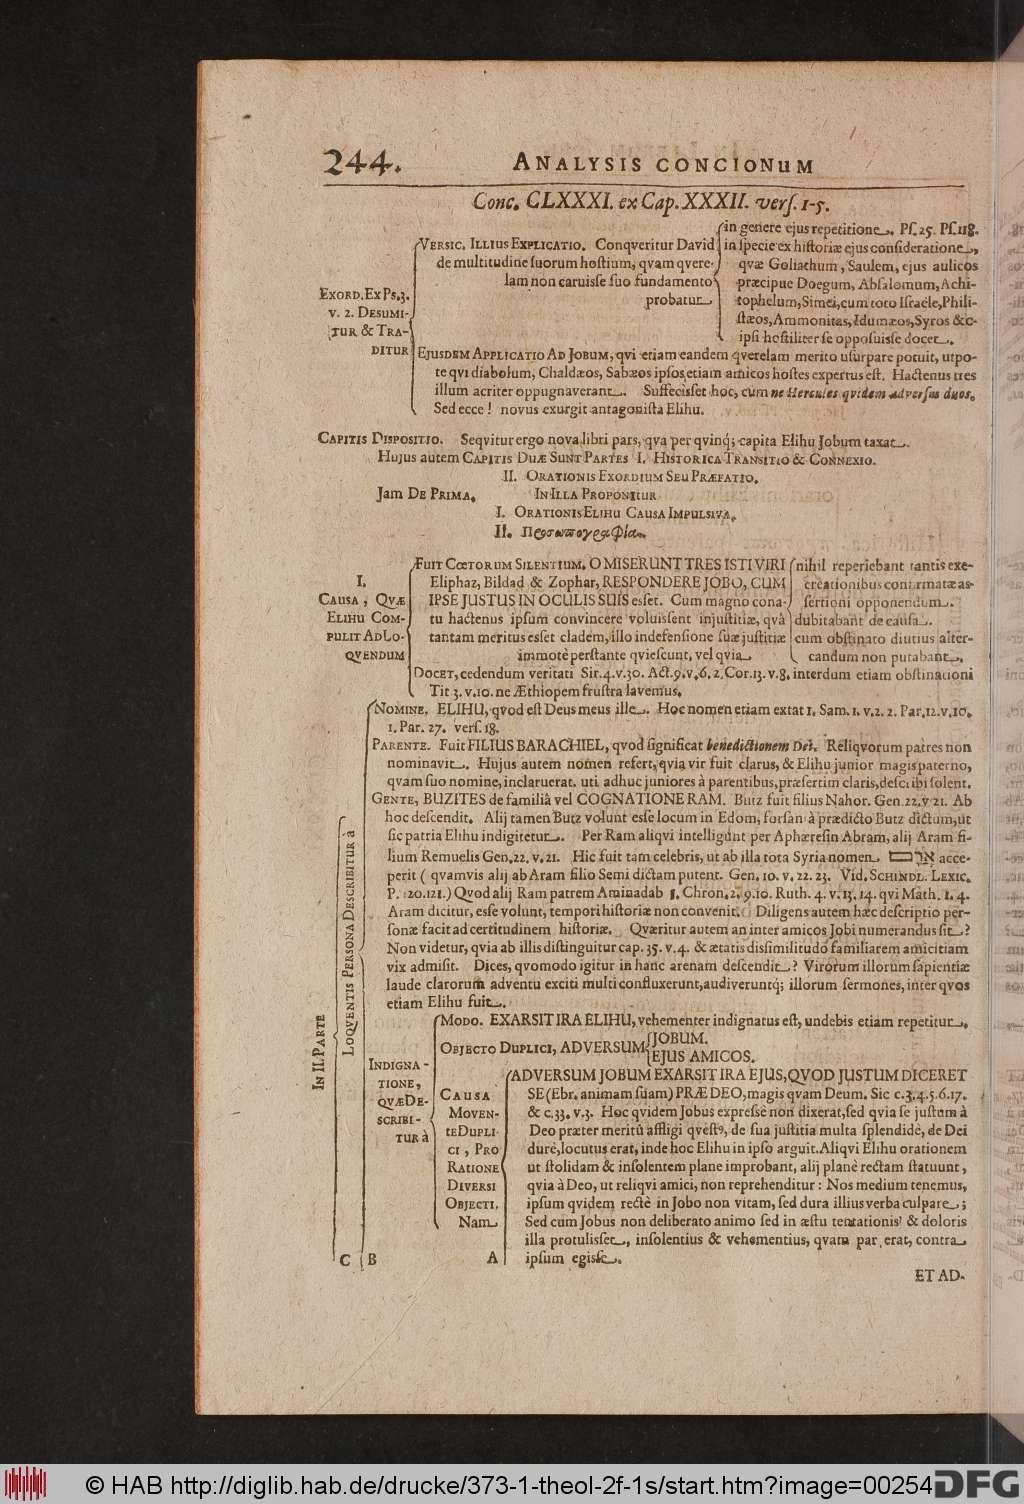 244. ANALYSIS CONCIONUM
Conc. CLXXXI. ex Cap. XXXII. verſ. 1-5.
EXORD. EX PS. 3.
v. 2. DESUMI-
TUR & TRA-
DITUR
VERSIC. ILLIUS EXPLICATIO. Conqveritur David
de multitudine ſuorum hoſtium, qvam qvere-
lam non caruiſſe ſuo fundamento
probatur
in genere ejus repetitione. Pſ. 25. Pſ. 118.
in ſpecie ex hiſtoriæ ejus conſideratione,
qvæ Goliathum, Saulem, ejus aulicos
præcipue Doegum, Abſalomum, Achi-
tophelum, Simei, cum toto Iſraële, Phili-
ſtæos, Ammonitas, Idumæos, Syros &c.
ipſi hoſtiliter ſe oppoſuiſſe docet.
EJUSDEM APPLICATIO AD JOBUM, qvi etiam eandem qverelam merito uſurpare potuit, utpo-
te qvi diabolum, Chaldæos, Sabæos ipſos etiam amicos hoſtes expertus eſt. Hactenus tres
illum acriter oppugnaverant. Suffeciſſet hoc, cum ne Hercules qvidem adverſus duos.
Sed ecce! novus exurgit antagoniſta Elihu.
CAPITIS DISPOSITIO. Seqvitur ergo nova libri pars, qva per qvinq; capita Elihu Jobum taxat.
Hujus autem CAPITIS DUÆ SUNT PARTES I. HISTORICA TRANSITIO & CONNEXIO.
II. ORATIONIS EXORDIUM SEU PRÆFATIO.
Jam DE PRIMA. IN ILLA PROPONITUR
I. ORATIONIS ELIHU CAUSA IMPULSIVA.
II. Προσωπογραφία.
I.
CAUSA, QVÆ
ELIHU COM-
PULIT AD LO-
QVENDUM
FUIT CŒTORUM SILENTIUM. OMISERUNT TRES ISTI VIRI
Eliphaz, Bildad & Zophar, RESPONDERE JOBO, CUM
IPSE JUSTUS IN OCULIS SUIS eſſet. Cum magno cona-
tu hactenus ipſum convincere voluiſſent injuſtitiæ, qvâ
tantam meritus eſſet cladem, illo indefenſione ſuæ juſtitiæ
immotè perſtante qvieſcunt, vel qvia
nihil reperiebant tantis exe-
crationibus confirmatæ as-
ſertioni opponendum.
dubitabant de cauſa.
cum obſtinato diutius alter-
candum non putabant,
DOCET, cedendum veritati Sir. 4. v. 30. Act. 9. v. 6. 2. Cor. 13. v. 8. interdum etiam obſtinationi
Tit 3. v. 10. ne Æthiopem fruſtra lavemus.
IN II. PARTE
LOQVENTIS PERSONA DESCRIBITUR à
NOMINE. ELIHU, qvod eſt Deus meus ille. Hoc nomen etiam extat 1. Sam. 1. v. 2. 2. Par. 12. v. 10.
1. Par. 27. verſ. 18.
PARENTE. Fuit FILIUS BARACHIEL, qvod ſignificat benedictionem Dei. Reliqvorum patres non
nominavit. Hujus autem nomen refert, qvia vir fuit clarus, & Elihu junior magis paterno,
qvam ſuo nomine, inclaruerat. uti adhuc juniores à parentibus, præſertim claris, deſcribi ſolent.
GENTE, BUZITES de familiâ vel COGNATIONE RAM. Butz fuit filius Nahor. Gen. 22. v 21. Ab
hoc deſcendit. Alij tamen Butz volunt eſſe locum in Edom, forſan à prædicto Butz dictum, ut
ſic patria Elihu indigitetur. Per Ram aliqvi intelligunt per Aphæreſin Abram, alij Aram fi-
lium Remuelis Gen. 22. v. 21. Hic fuit tam celebris, ut ab illa tota Syria nomen אֲרָם acce-
perit (qvamvis alij ab Aram filio Semi dictam putent. Gen. 10. v. 22. 23. Vid. SCHINDL. LEXIC.
P. 120. 121.) Qvod alij Ram patrem Aminadab 1. Chron. 2. 9. 10. Ruth. 4. v. 13. 14. qvi Math. 1. 4.
Aram dicitur, eſſe volunt, tempori hiſtoriæ non convenit. Diligens autem hæc deſcriptio per-
ſonæ facit ad certitudinem hiſtoriæ. Qværitur autem an inter amicos Jobi numerandus ſit?
Non videtur, qvia ab illis diſtinguitur cap. 35. v. 4. & ætatis diſſimilitudo familiarem amicitiam
vix admiſit. Dices, qvomodo igitur in hanc arenam deſcendit? Virorum illorum ſapientiæ
laude clarorum adventu exciti multi confluxerunt, audiveruntq; illorum ſermones, inter qvos
etiam Elihu fuit.
INDIGNA-
TIONE,
QVÆ DE-
SCRIBI-
TUR à
MODO. EXARSIT IRA ELIHU, vehementer indignatus eſt, unde bis etiam repetitur.
OBJECTO DUPLICI, ADVERSUM
JOBUM.
EJUS AMICOS.
CAUSA
MOVEN-
TE DUPLI-
CI, PRO
RATIONE
DIVERSI
OBJECTI.
Nam
ADVERSUM JOBUM EXARSIT IRA EJUS, QVOD JUSTUM DICERET
SE (Ebr. animam ſuam) PRÆ DEO, magis qvam Deum. Sic c. 3. 4. 5. 6. 17.
& c. 33. v. 3. Hoc qvidem Jobus expreſsè non dixerat, ſed qvia ſe juſtum à
Deo præter meritũ affligi qveſtꝰ, de ſua juſtitia multa ſplendidè, de Dei
durè, locutus erat, inde hoc Elihu in ipſo arguit. Aliqvi Elihu orationem
ut ſtolidam & inſolentem plane improbant, alij planè rectam ſtatuunt,
qvia à Deo, ut reliqvi amici, non reprehenditur: Nos medium tenemus,
ipſum qvidem rectè in Jobo non vitam, ſed dura illius verba culpare;
Sed cum Jobus non deliberato animo ſed in æſtu tentationis & doloris
illa protuliſſet, inſolentius & vehementius, qvam par erat, contra
ipſum egiſſe.
C B A
ET AD-
© HAB http://diglib.hab.de/drucke/373-1-theol-2f-1s/start.htm?image=00254
DFG